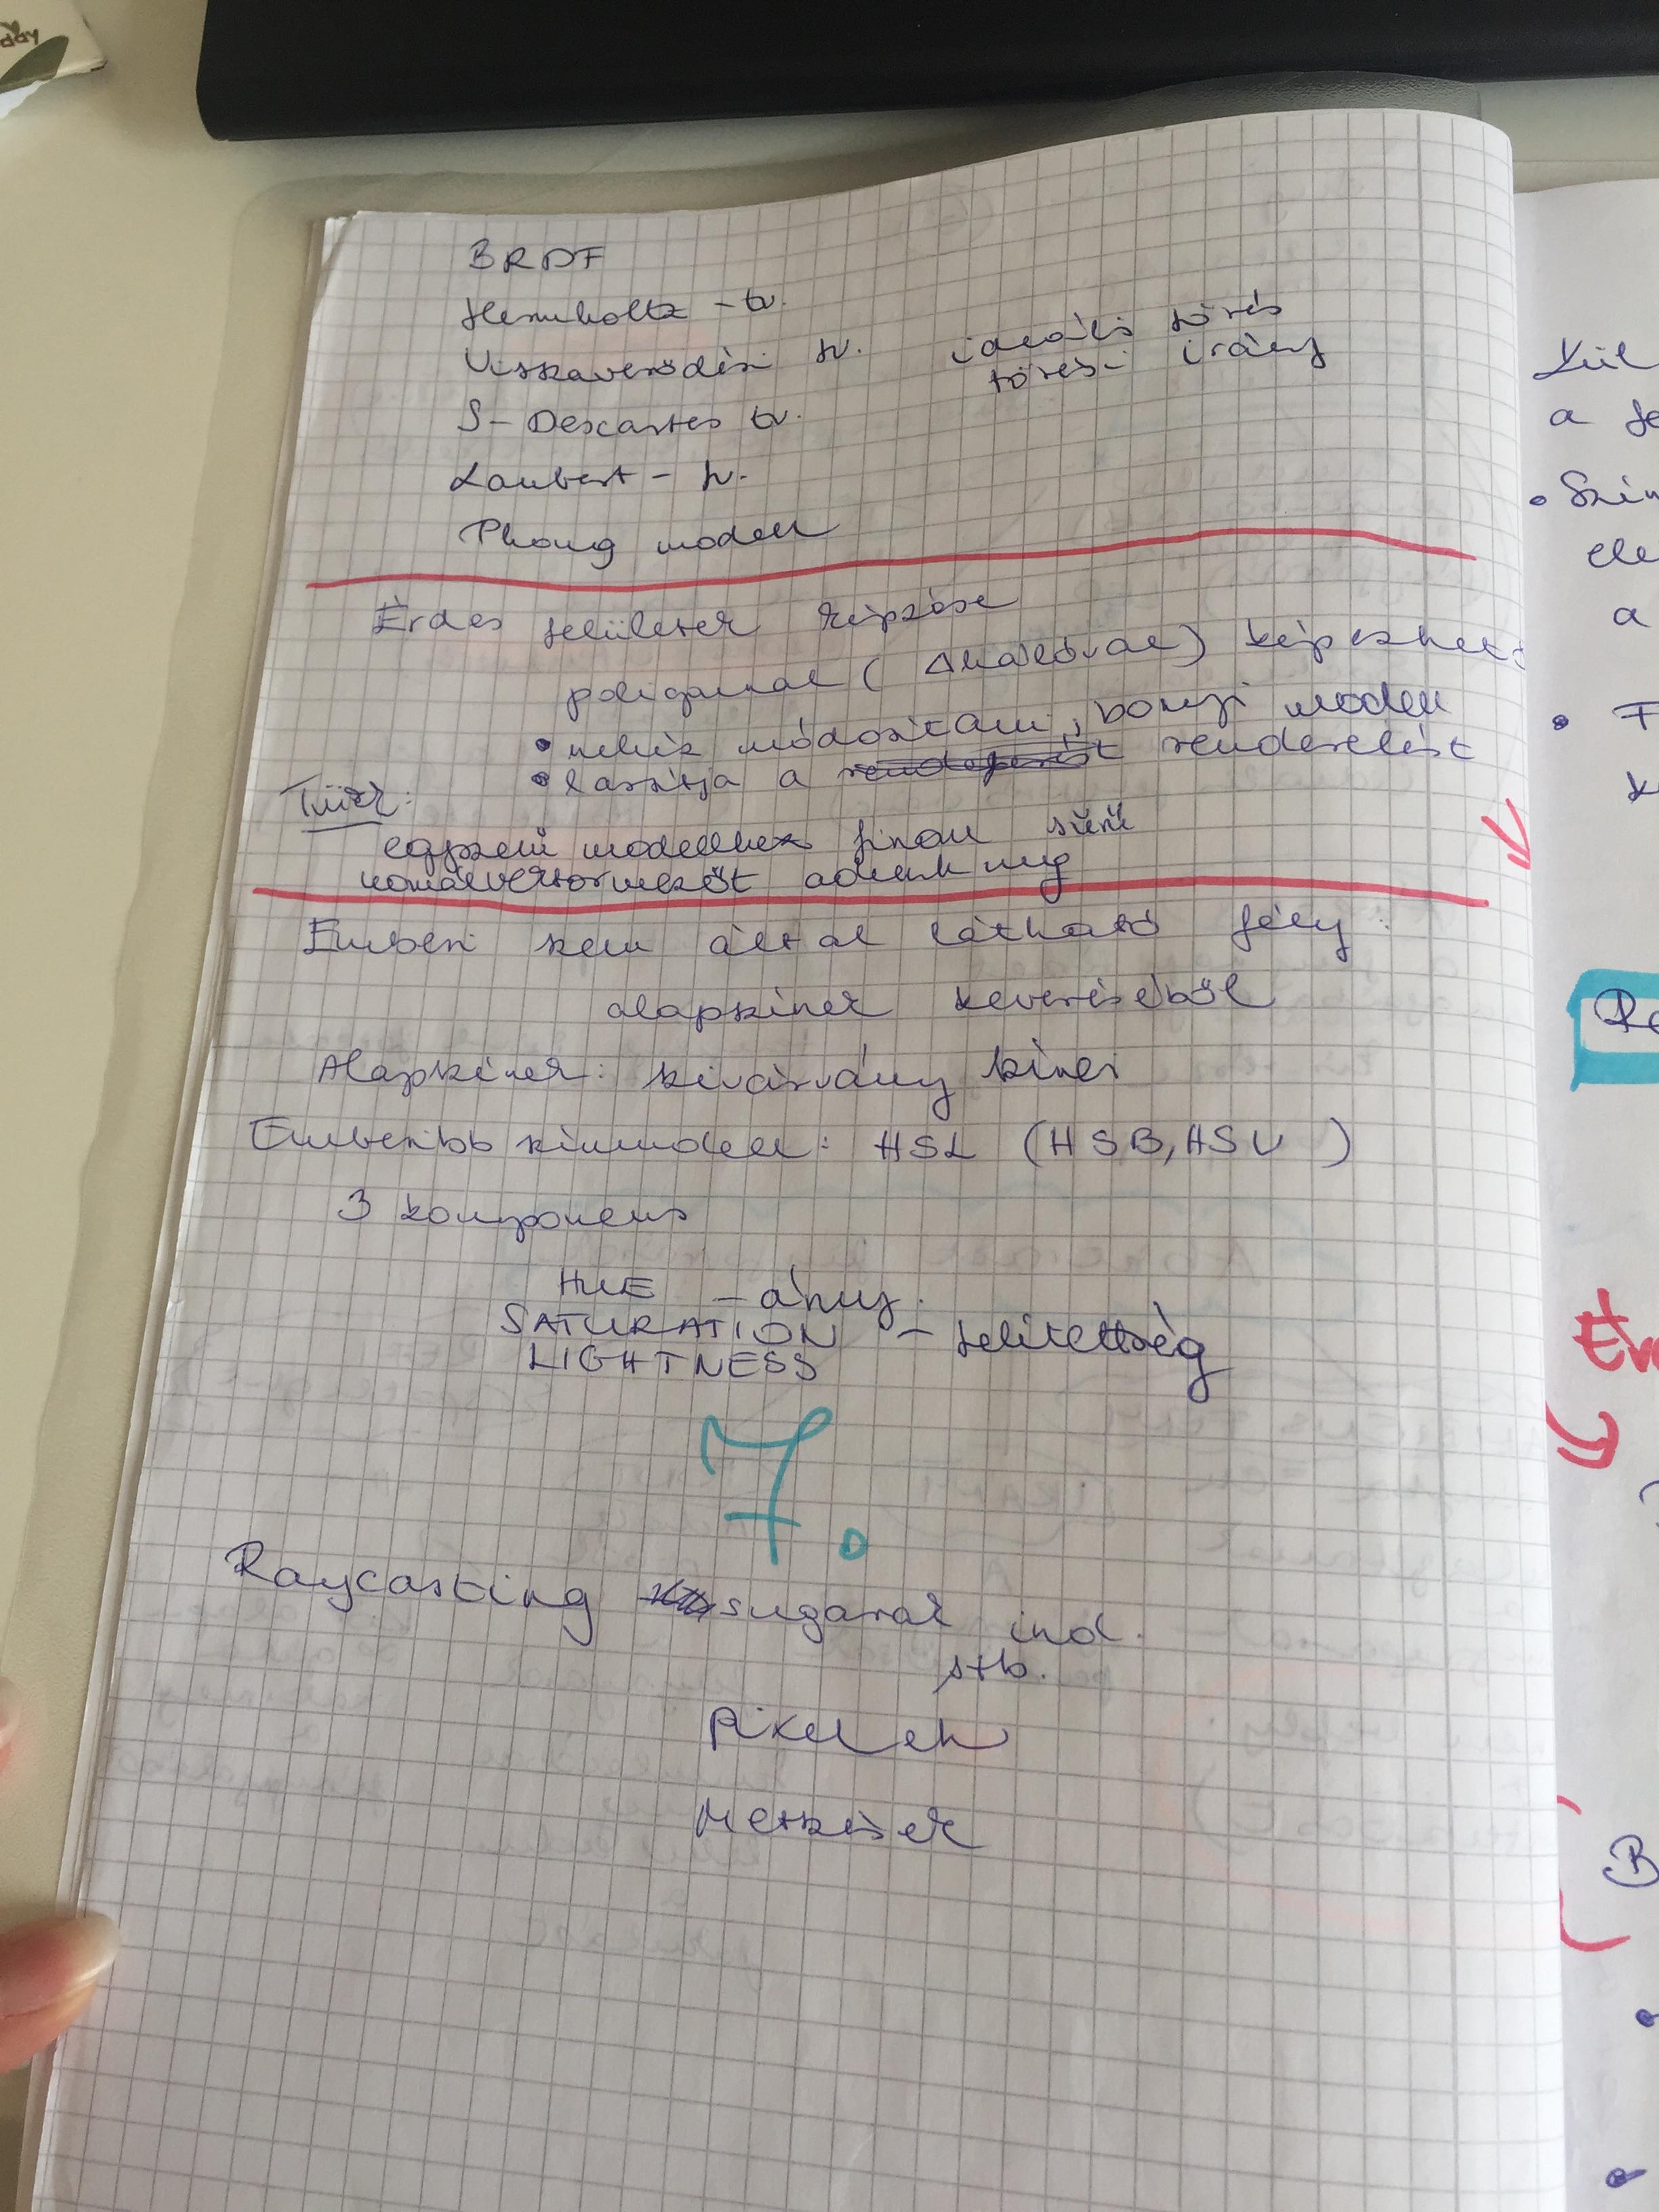 day
BRDF
Hemholtz - tv.
Visszaverődési tv. ideális törés
törési irány
S-Descartes tv.
Lambert - tv.
Phong modell
Érdes felületek képzése
poligonnal (Δhálóval) képezhető
• nehéz módosítani, bonyi modell
• lassítja a renderelést
Trükk:
egyszerű modellhez finom sűrű
normálvektormezőt adunk meg
Emberi szem által látható fény:
alapszínek keveréséből
Alapszínek: szivárvány színei
Emberibb színmodell: HSL (HSB, HSV )
3 komponens
HUE - árny.
SATURATION - telítettség
LIGHTNESS
7.
Raycasting sugarak ind.
stb.
pixelek
Metszések
Kül
a fe
• Szín
ele
a
• F
K
Re
Érd
B